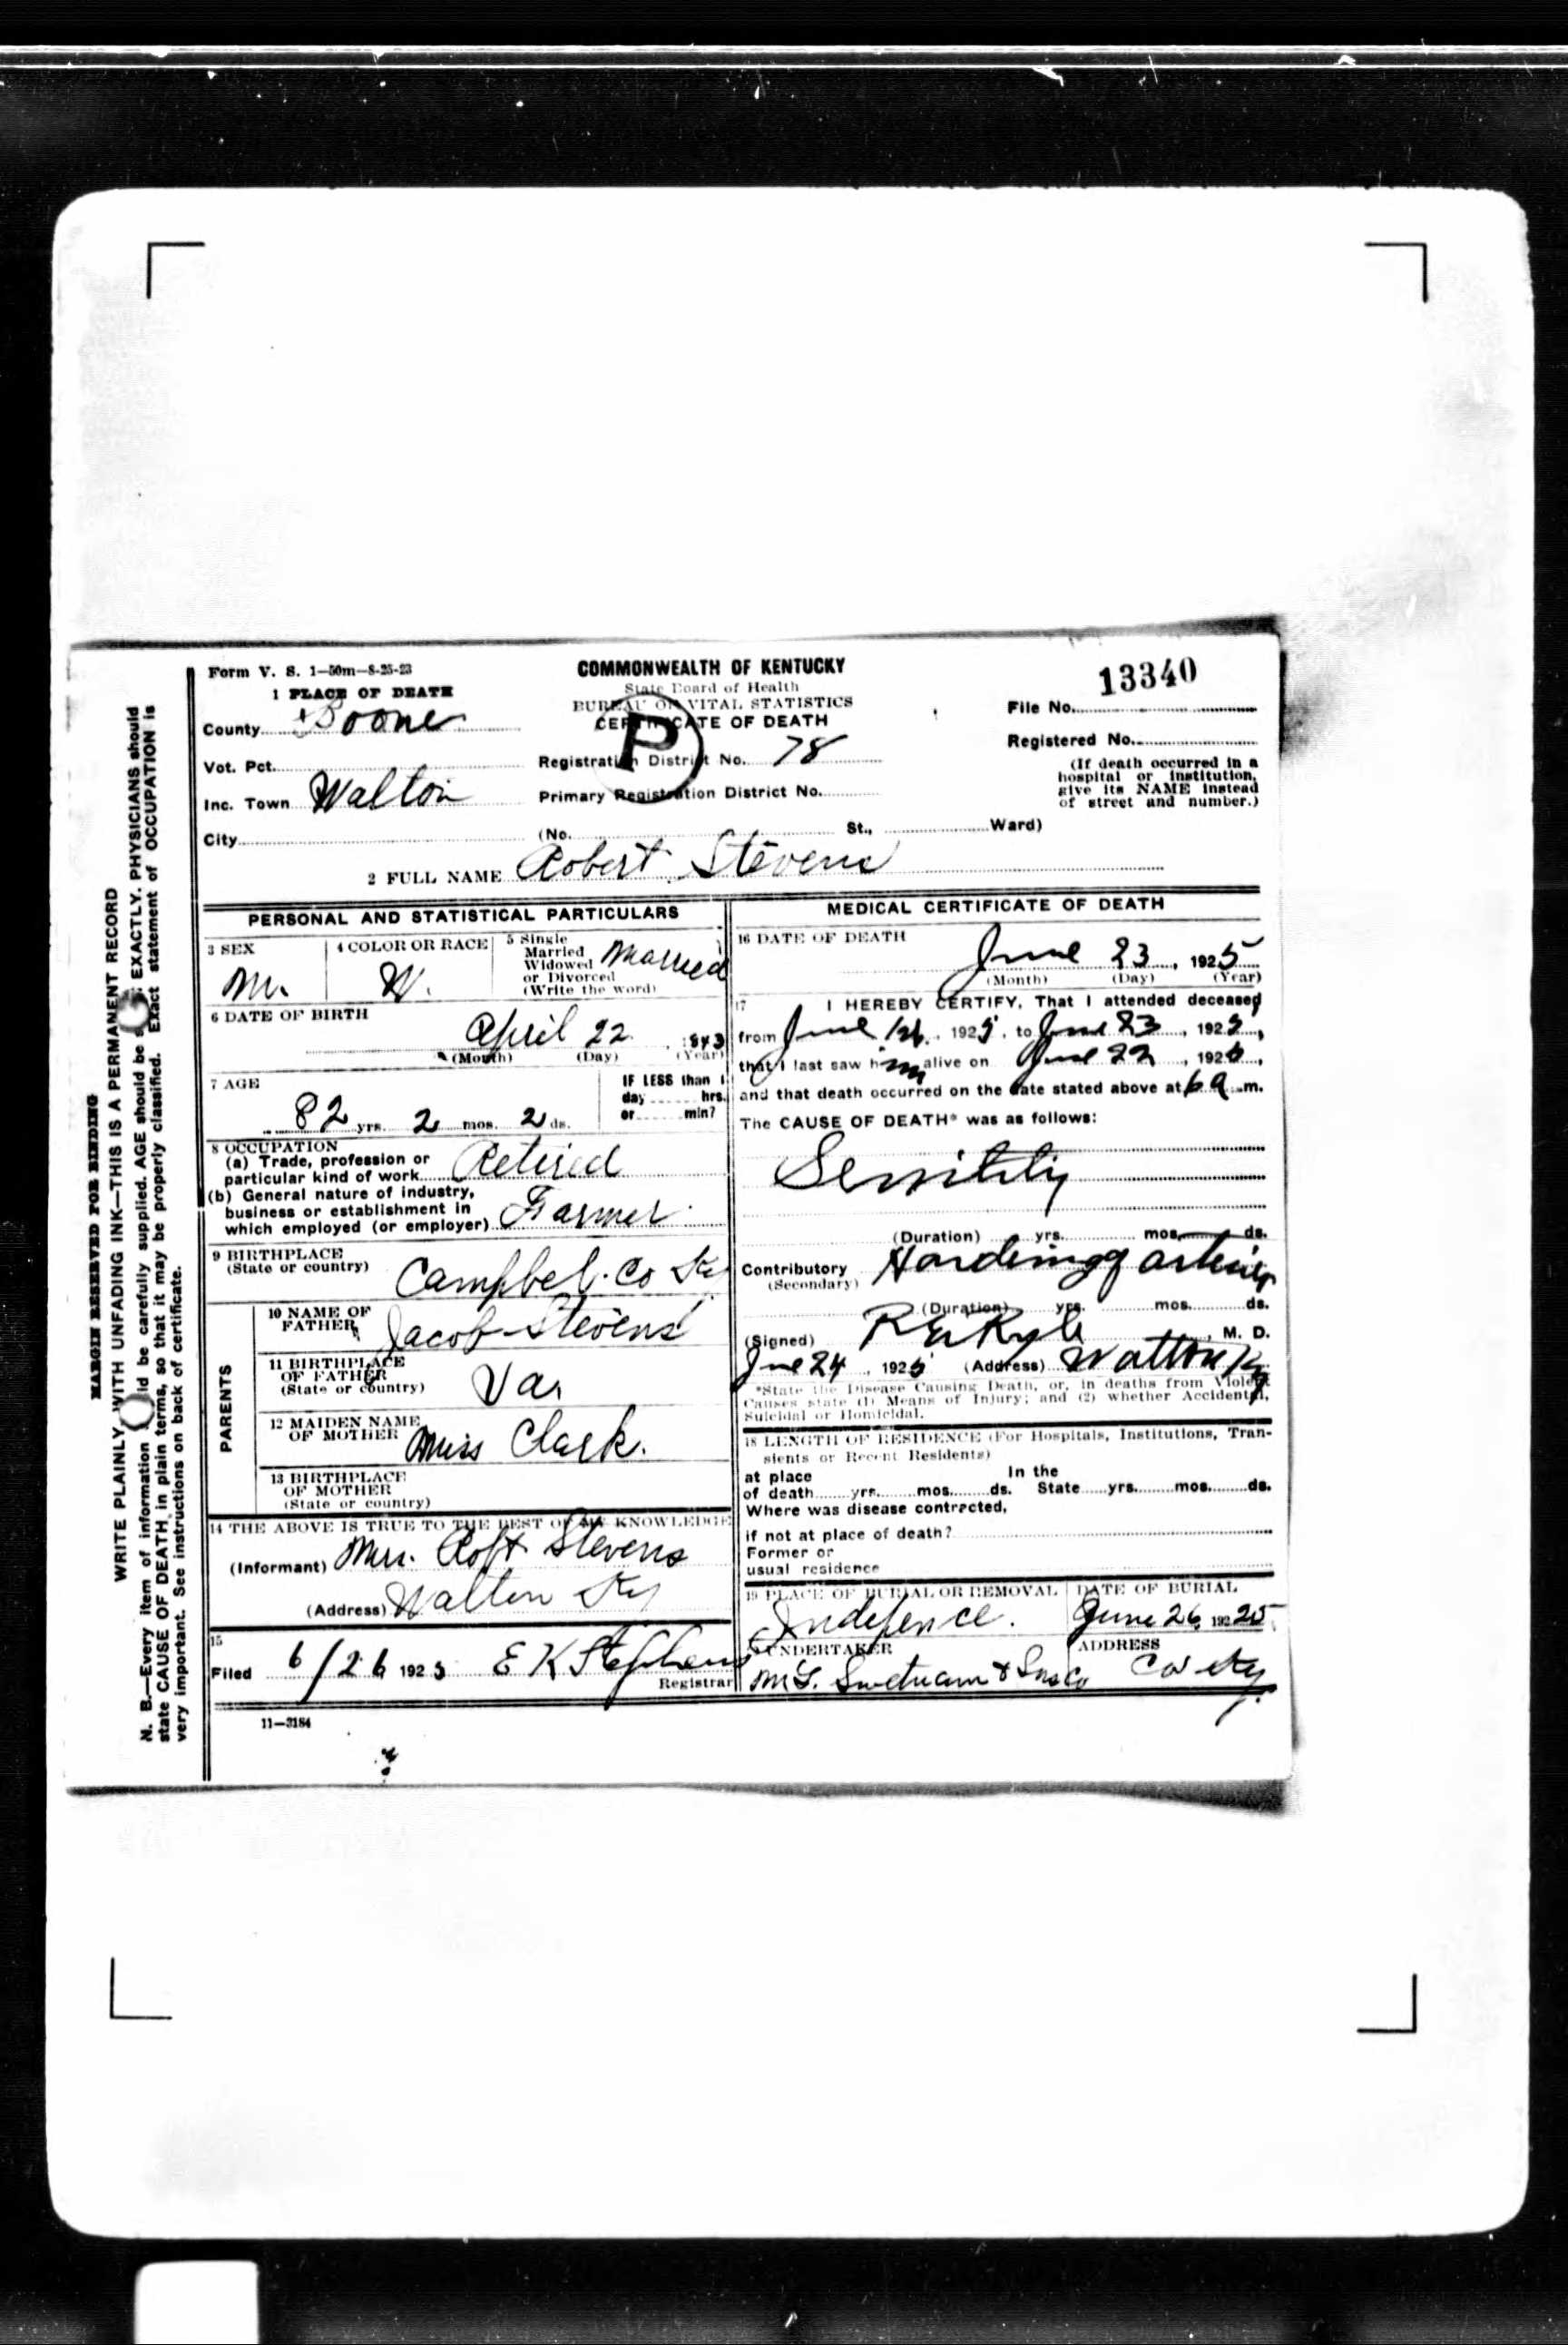 MARGIN RESERVED FOR BINDING
WRITE PLAINLY, WITH UNFADING INK—THIS IS A PERMANENT RECORD
N. B.—Every item of information ld be carefully supplied. AGE should be s EXACTLY. PHYSICIANS should
state CAUSE OF DEATH in plain terms, so that it may be properly classified. Exact statement of OCCUPATION is
very important. See instructions on back of certificate.
Form V. S. 1—50m—8-25-23
COMMONWEALTH OF KENTUCKY
State Board of Health
BUREAU OF VITAL STATISTICS
CERTIFICATE OF DEATH
P
13340
File No.
Registered No.
(If death occurred in a
hospital or institution,
give its NAME instead
of street and number.)
1 PLACE OF DEATH
County Boone
Vot. Pct.
Registration District No. 78
Inc. Town Walton
Primary Registration District No.
City (No. St., Ward)
2 FULL NAME Robert Stevens
PERSONAL AND STATISTICAL PARTICULARS
3 SEX
M.
4 COLOR OR RACE
W.
5 Single
Married
Widowed
or Divorced
(Write the word)
Married
6 DATE OF BIRTH
April 22 1843
(Month) (Day) (Year)
7 AGE
82 yrs. 2 mos. 2 ds.
IF LESS than 1
day hrs.
or min?
8 OCCUPATION
(a) Trade, profession or
particular kind of work Retired
(b) General nature of industry,
business or establishment in
which employed (or employer) Farmer
9 BIRTHPLACE
(State or country) Campbel. Co Ky
PARENTS
10 NAME OF
FATHER Jacob Stevens
11 BIRTHPLACE
OF FATHER
(State or country) Va.
12 MAIDEN NAME
OF MOTHER Miss Clark.
13 BIRTHPLACE
OF MOTHER
(State or country)
14 THE ABOVE IS TRUE TO THE BEST OF MY KNOWLEDGE
(Informant) Mrs. Robt Stevens
(Address) Walton Ky
15
Filed 6/26 1925 E K Stephens
Registrar
11—3184
MEDICAL CERTIFICATE OF DEATH
16 DATE OF DEATH
June 23, 1925
(Month) (Day) (Year)
17 I HEREBY CERTIFY, That I attended deceased
from June , 1925, to June 23, 1925,
that I last saw him alive on June 22, 1925,
and that death occurred on the date stated above at 6 a m.
The CAUSE OF DEATH* was as follows:
Senility
(Duration) yrs. mos. ds.
Contributory Hardening of
(Secondary)
(Duration) yrs. mos. ds.
(Signed) Ryle, M. D.
June 24, 1925 (Address) Walton Ky
*State the Disease Causing Death, or, in deaths from Violent
Causes state (1) Means of Injury; and (2) whether Accidental,
Suicidal or Homicidal.
18 LENGTH OF RESIDENCE (For Hospitals, Institutions, Tran-
sients or Recent Residents)
at place In the
of death yrs. mos. ds. State yrs. mos. ds.
Where was disease contracted,
if not at place of death?
Former or
usual residence
19 PLACE OF BURIAL OR REMOVAL
Indepence.
DATE OF BURIAL
June 26, 1925
UNDERTAKER
Swetnam & Sons Co
ADDRESS
Cov Ky